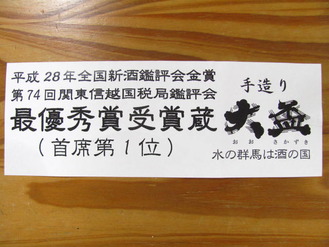 平成28年全国新酒鑑評会金賞
第74回関東信越国税局鑑評会
最優秀賞受賞蔵
(首席第1位)
手造り
大盃
おお さかずき
水の群馬は酒の国